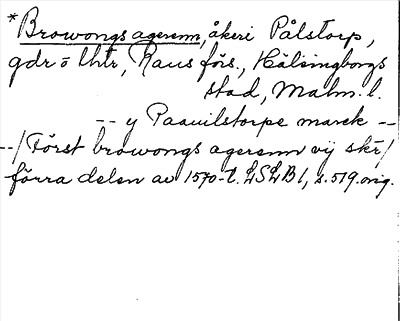 *Browongs agerenn, åkeri Pålstorp,
gdr o lhtr, Raus förs., Hälsingborgs
stad, Malm. l.
-- y Paauilstorpe marck --
--/Först browongs agerenn vij skr/
förra delen av 1570-t. LSLB1, s. 519. orig.